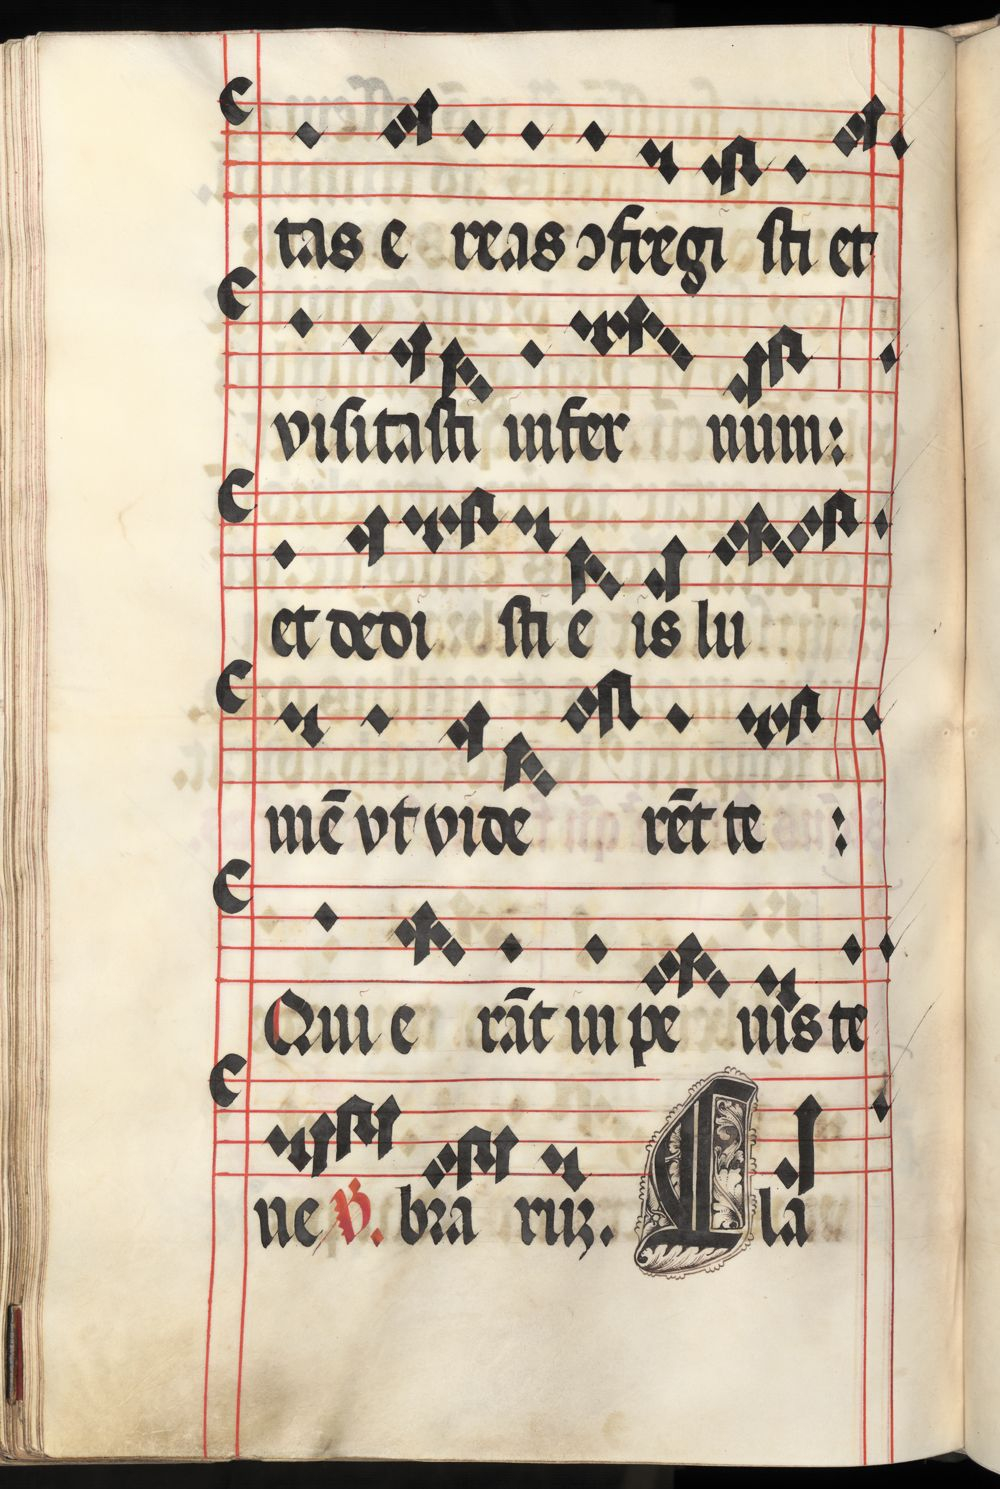 tas e reas ↄfregi sti et
visitasti infer num:
et dedi sti e is lu
mē vt vide rēt te :
Qui e rāt in pe nis te
ne ℣. bra rūꝫ. Cla